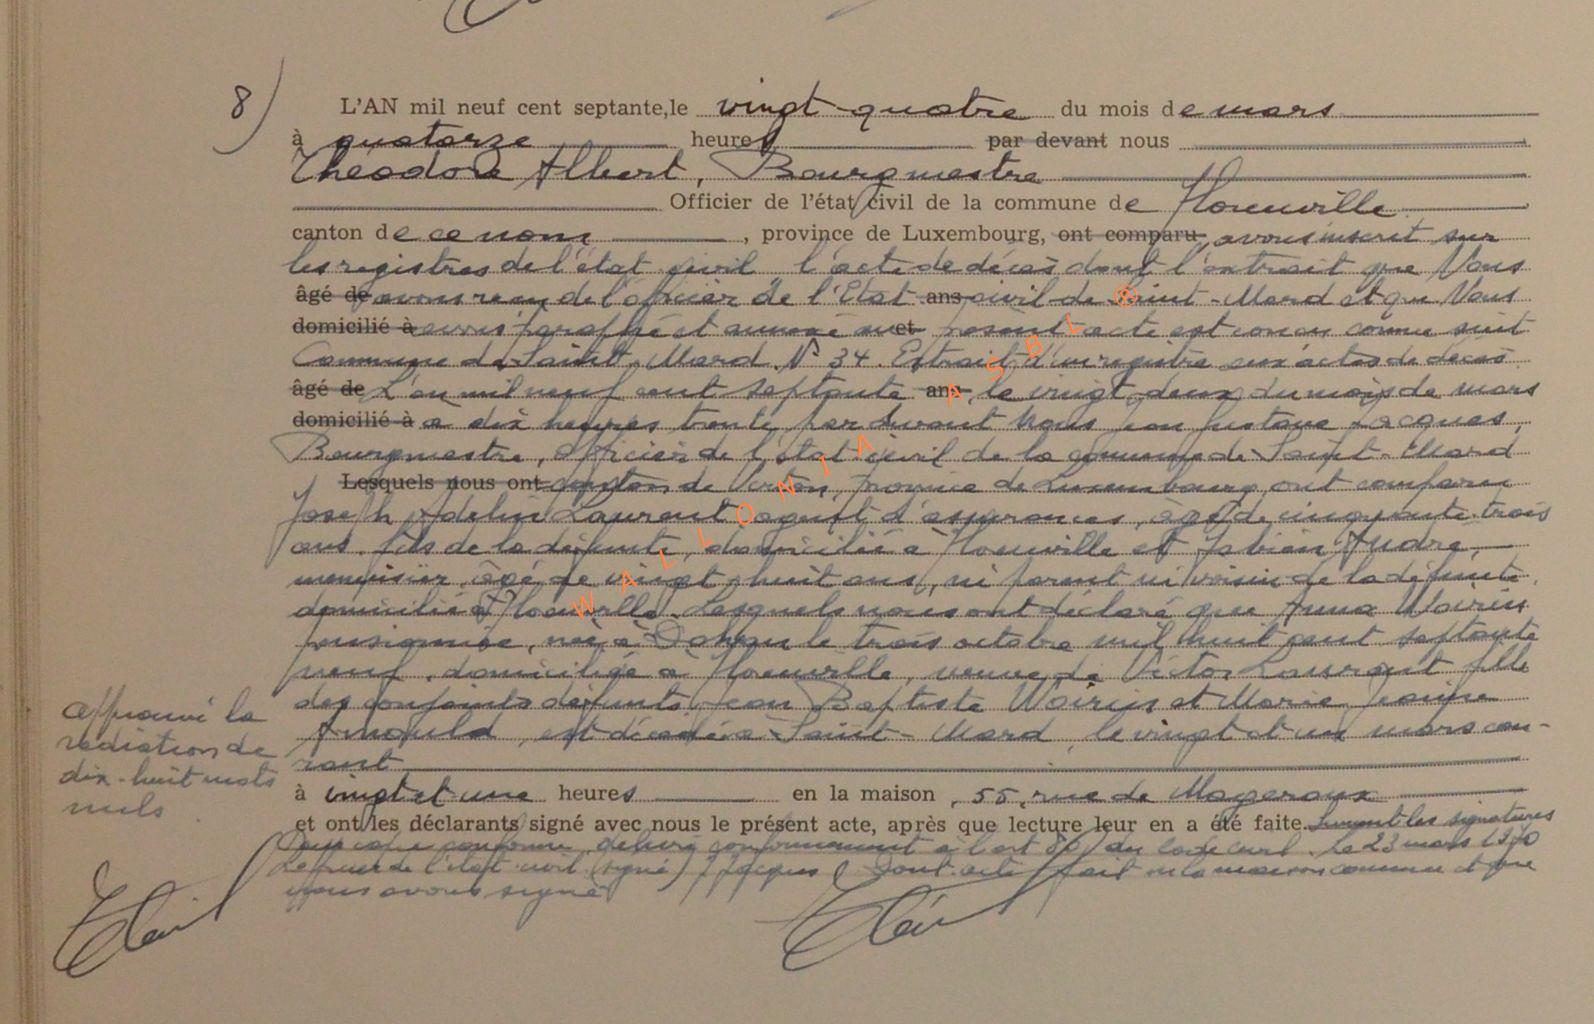 8)
L'AN mil neuf cent septante, le vingt-quatre du mois de mars
à quatorze heures par devant nous
Théodore Albert, Bourgmestre
Officier de l'état civil de la commune de Houville
canton de ce nom, province de Luxembourg, ont comparu avons inscrit sur
les registres de l'état civil l'acte de décès dont l'extrait que Nous
âgé de avons reçu de l'officier de l'Etat ans civil de Saint-Mard et que Nous
domicilié à avons paraphé et annexé au et présent acte est conçu comme suit
Commune de Saint-Mard N° 34. Extrait d'un registre aux actes de décès
âgé de L'an mil neuf cent septante ans, le vingt-deux du mois de mars
domicilié à à dix heures trente par devant Nous Jacques,
Bourgmestre, officier de l'état civil de la commune de Saint-Mard
Lesquels nous ont canton de Virton, province de Luxembourg, ont comparu
Joseph Adelin Laurent agent d'assurances, âgé de cinquante-trois
ans, fils de la défunte, domicilié à Houville et Fabien André,
menuisier, âgé de vingt-huit ans, ni parent ni voisin de la défunte,
domicilié à Houville. Lesquels nous ont déclaré que Anna Woirin
pensionnée, née à le trois octobre mil huit cent septante
neuf, domiciliée à Houville, veuve de Victor Laurent fille
des conjoints défunts Jean Baptiste Woirin et Marie Jeanne
Arnould, est décédée à Saint-Mard, le vingt et un mars cou-
rant
à vingt et une heures en la maison, 55, rue de Mageroux
et ont les déclarants signé avec nous le présent acte, après que lecture leur en a été faite. Suivent les signatures
Pour copie conforme délivré conformément à l'art 80 du code civil. Le 23 mars 1970
L'officier de l'état civil (signé) J Jacques Dont acte fait en la maison commune et que
nous avons signé
approuvé la
radiation de
dix-huit mots
nuls
WALLONIA ASBL ®